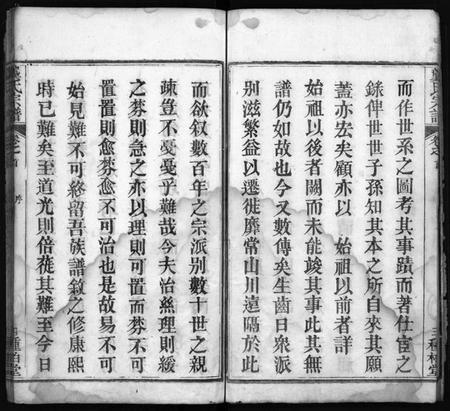 而作世系之圖考其事蹟而著仕宦之
錄俾世世子孫知其本之所自來其願
蓋亦宏矣顧亦以　始祖以前者詳
始祖以後者闕而未能竣其事此其無
譜仍如故也今又數傳矣生齒日衆派
別滋繁益以遷徙靡常山川遠隔於此
而欲叙數百年之宗派别數十世之親
疎豈不憂憂乎難哉今夫治絲理則緩
之棼則急之亦以理則可置而棼不可
置置則愈棼愈不可治也是故易不可
始見難不可終留吾族譜敘之修康熙
時已難矣至道光則倍蓰其難至今日
氏宗譜
卷之首
序
三種柏堂